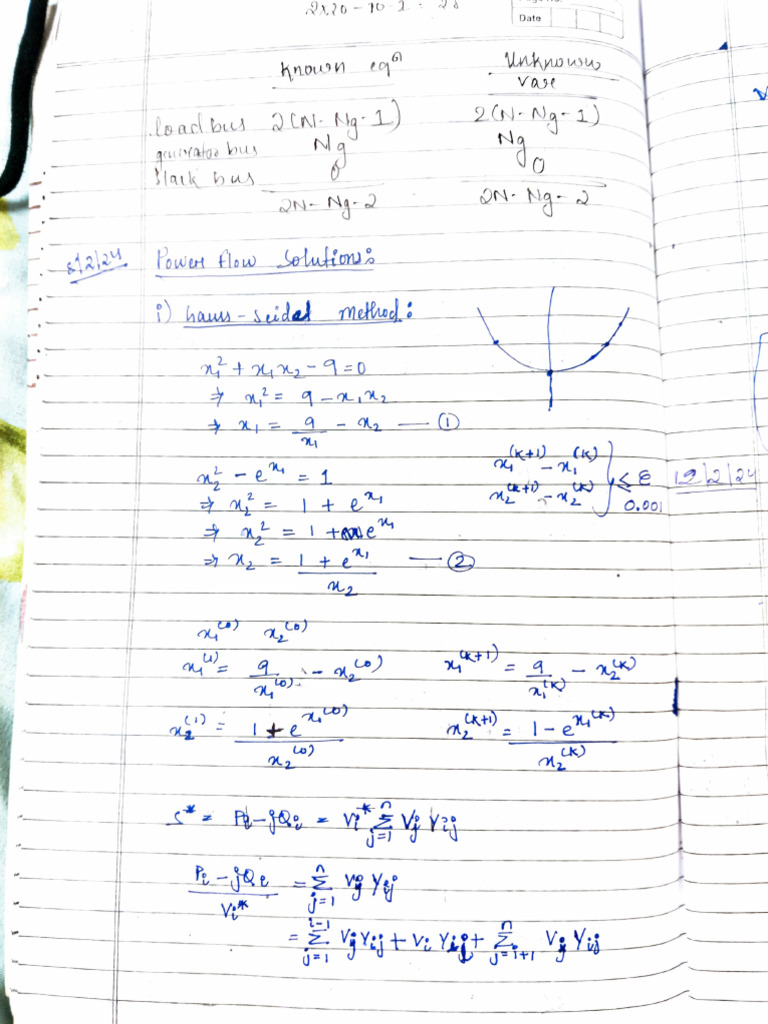 2x20-10-2 = 28
Date
Known eqⁿ Unknown
Var
Load bus 2(N-Ng-1) 2(N-Ng-1)
generator bus Ng Ng
slack bus 0 0
2N-Ng-2 2N-Ng-2
8/2/24 Power flow solutions:
i) Gauss-Seidel method:
x₁² + x₁x₂ - 9 = 0
⇒ x₁² = 9 - x₁x₂
⇒ x₁ = 9/x₁ - x₂ — ①
x₂² - e^x₁ = 1
x₁^(k+1) - x₁^(k)
x₂^(k+1) - x₂^(k) } ≤ ε 0.001
12/2/24
⇒ x₂² = 1 + e^x₁
⇒ x₂² = 1 + e^x₁
⇒ x₂ = (1 + e^x₁)/x₂ — ②
x₁^(0) x₂^(0)
x₁^(1) = 9/x₁^(0) - x₂^(0) x₁^(k+1) = 9/x₁^(k) - x₂^(k)
x₂^(1) = (1 + e^x₁^(0))/x₂^(0) x₂^(k+1) = (1 - e^x₁^(k))/x₂^(k)
S* = Pi - jQi = Vi* Σ_{j=1}^{n} Vj Yij
(Pi - jQi)/Vi* = Σ_{j=1}^{n} Vj Yij
= Σ_{j=1}^{i-1} Vj Yij + Vi Yij + Σ_{j=i+1}^{n} Vj Yij